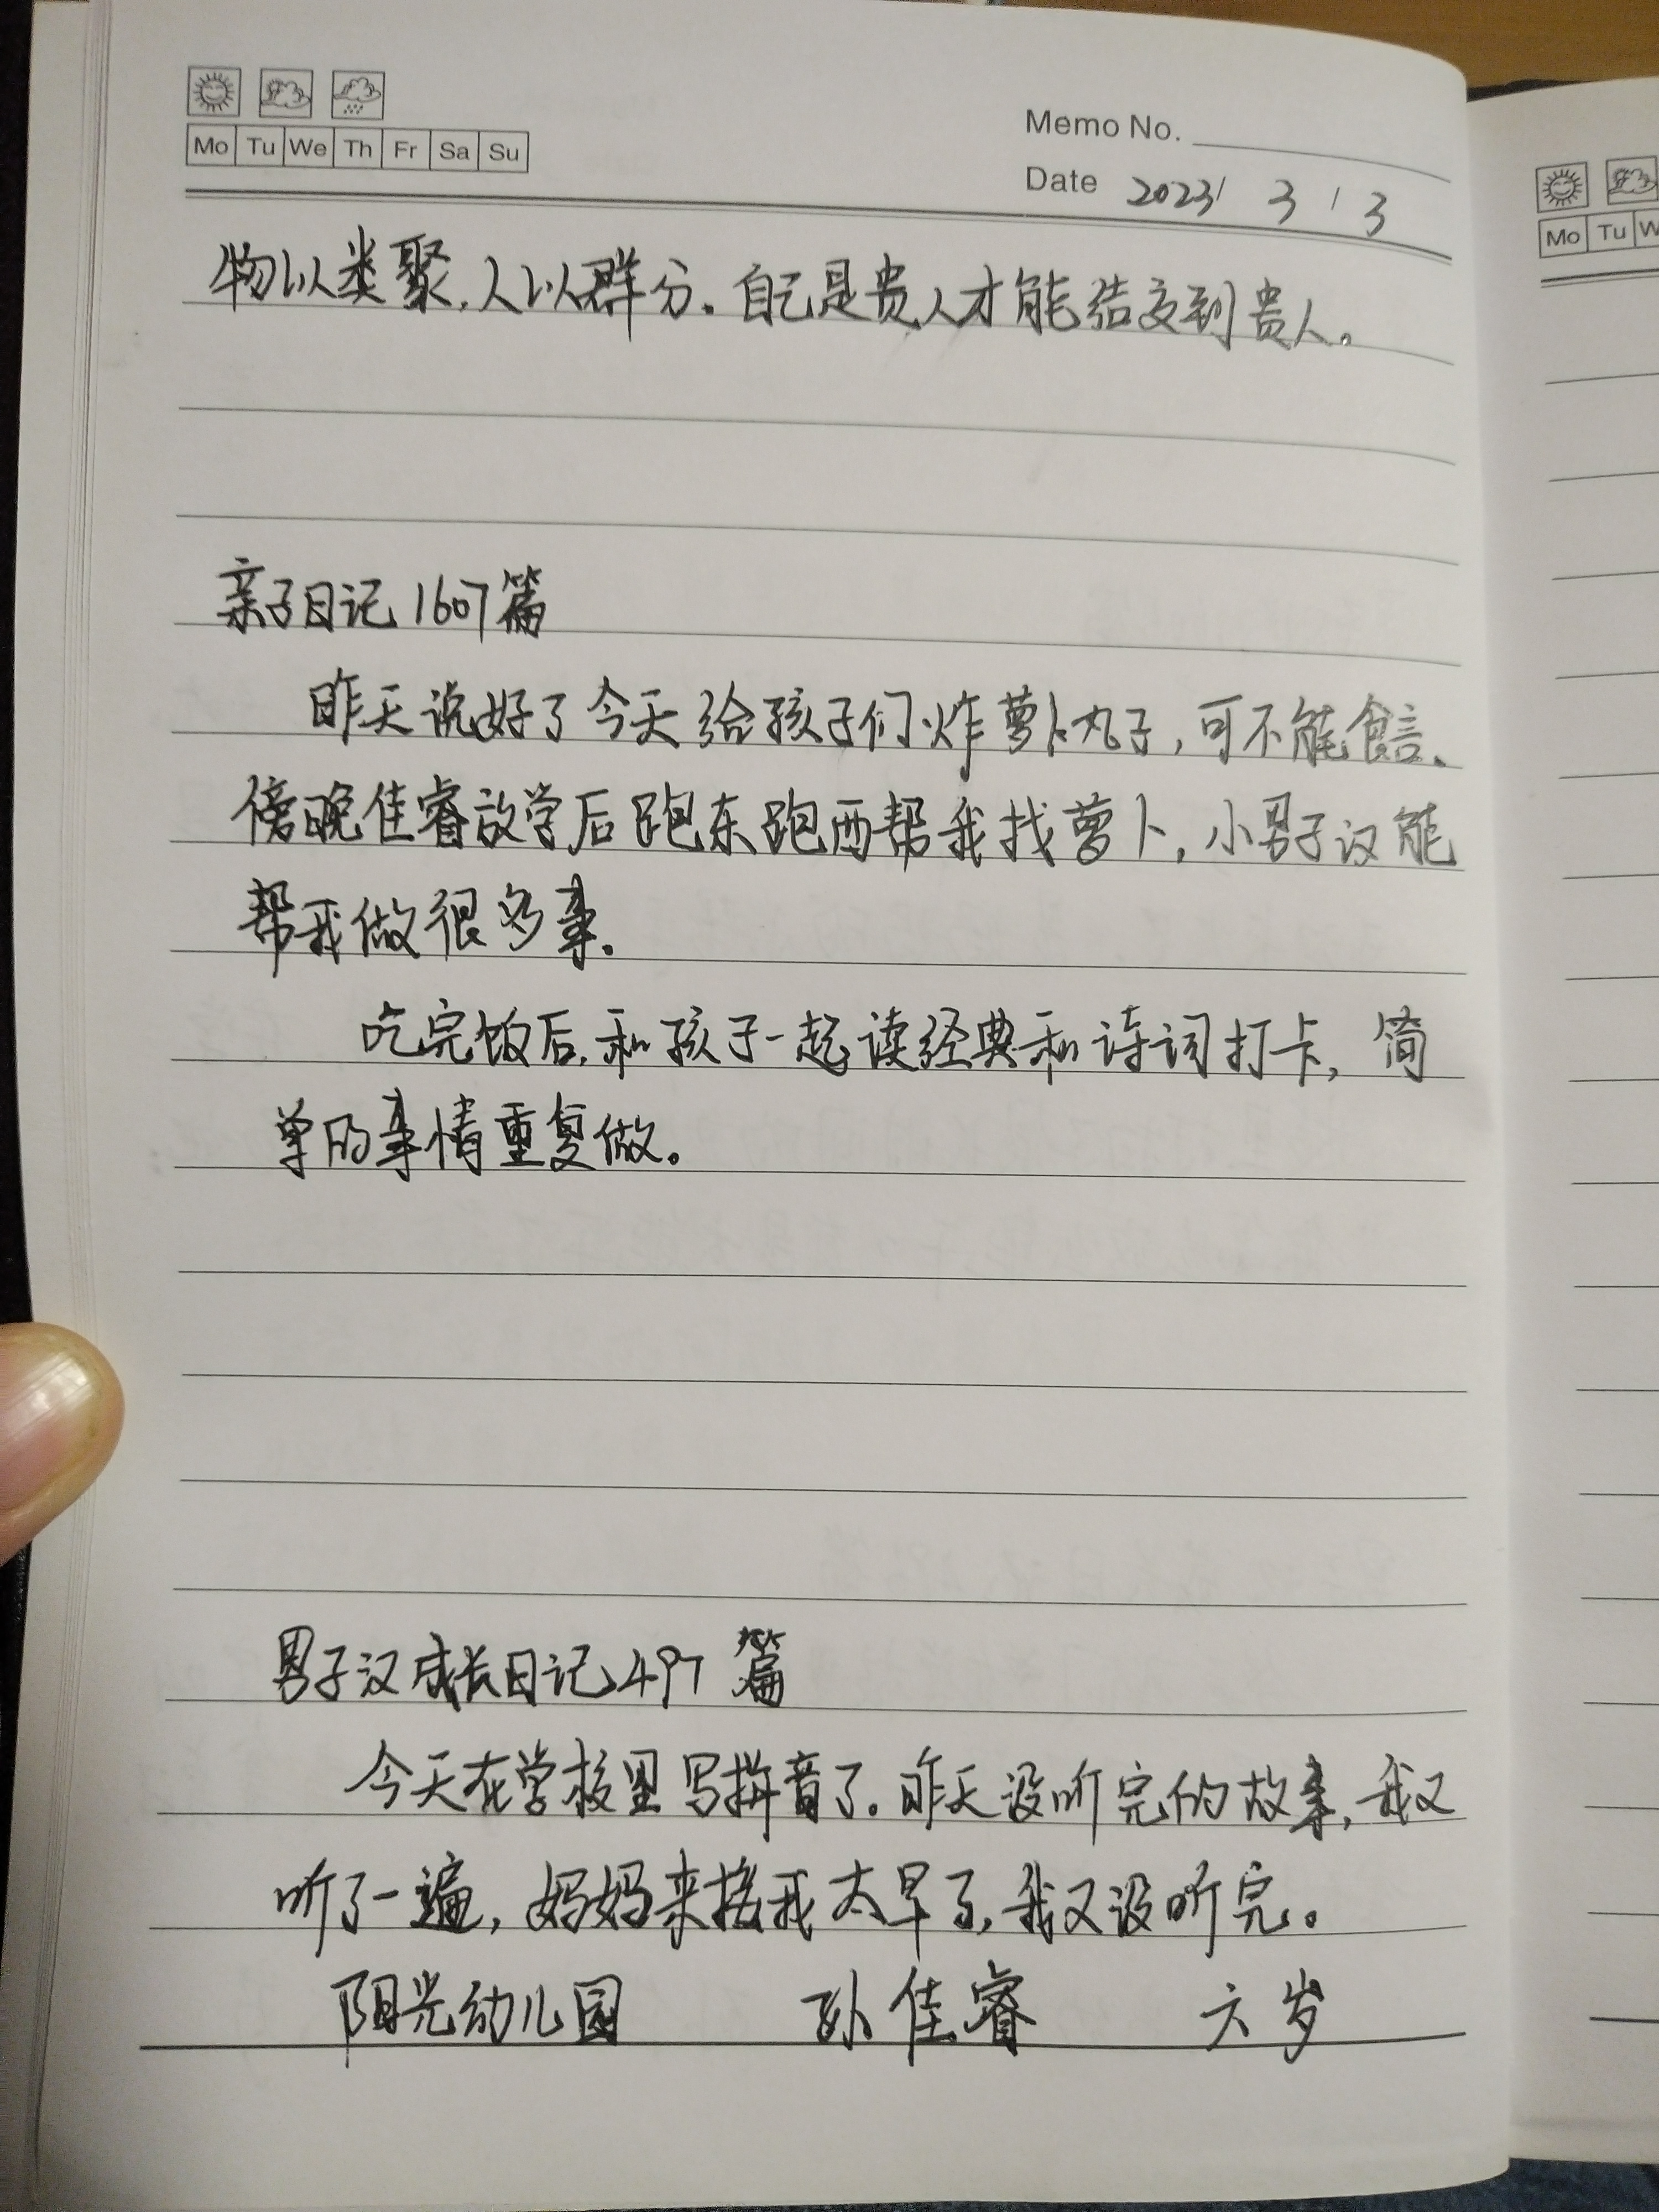 Mo Tu We Th Fr Sa Su
Memo No.
Date 2023/ 3 / 3
物以类聚,人以群分。自己是贵人才能结交到贵人。
亲子日记1607篇
昨天说好了今天给孩子们炸萝卜丸子,可不能食言、
傍晚佳睿放学后跑东跑西帮我找萝卜,小男子汉能
帮我做很多事.
吃完饭后,和孩子一起读经典和诗词打卡,简
单的事情重复做。
男子汉成长日记497篇
今天在学校里写拼音了。昨天没听完的故事,我又
听了一遍,妈妈来接我太早了,我又没听完。
阳光幼儿园 孙佳睿 六岁
Mo Tu W